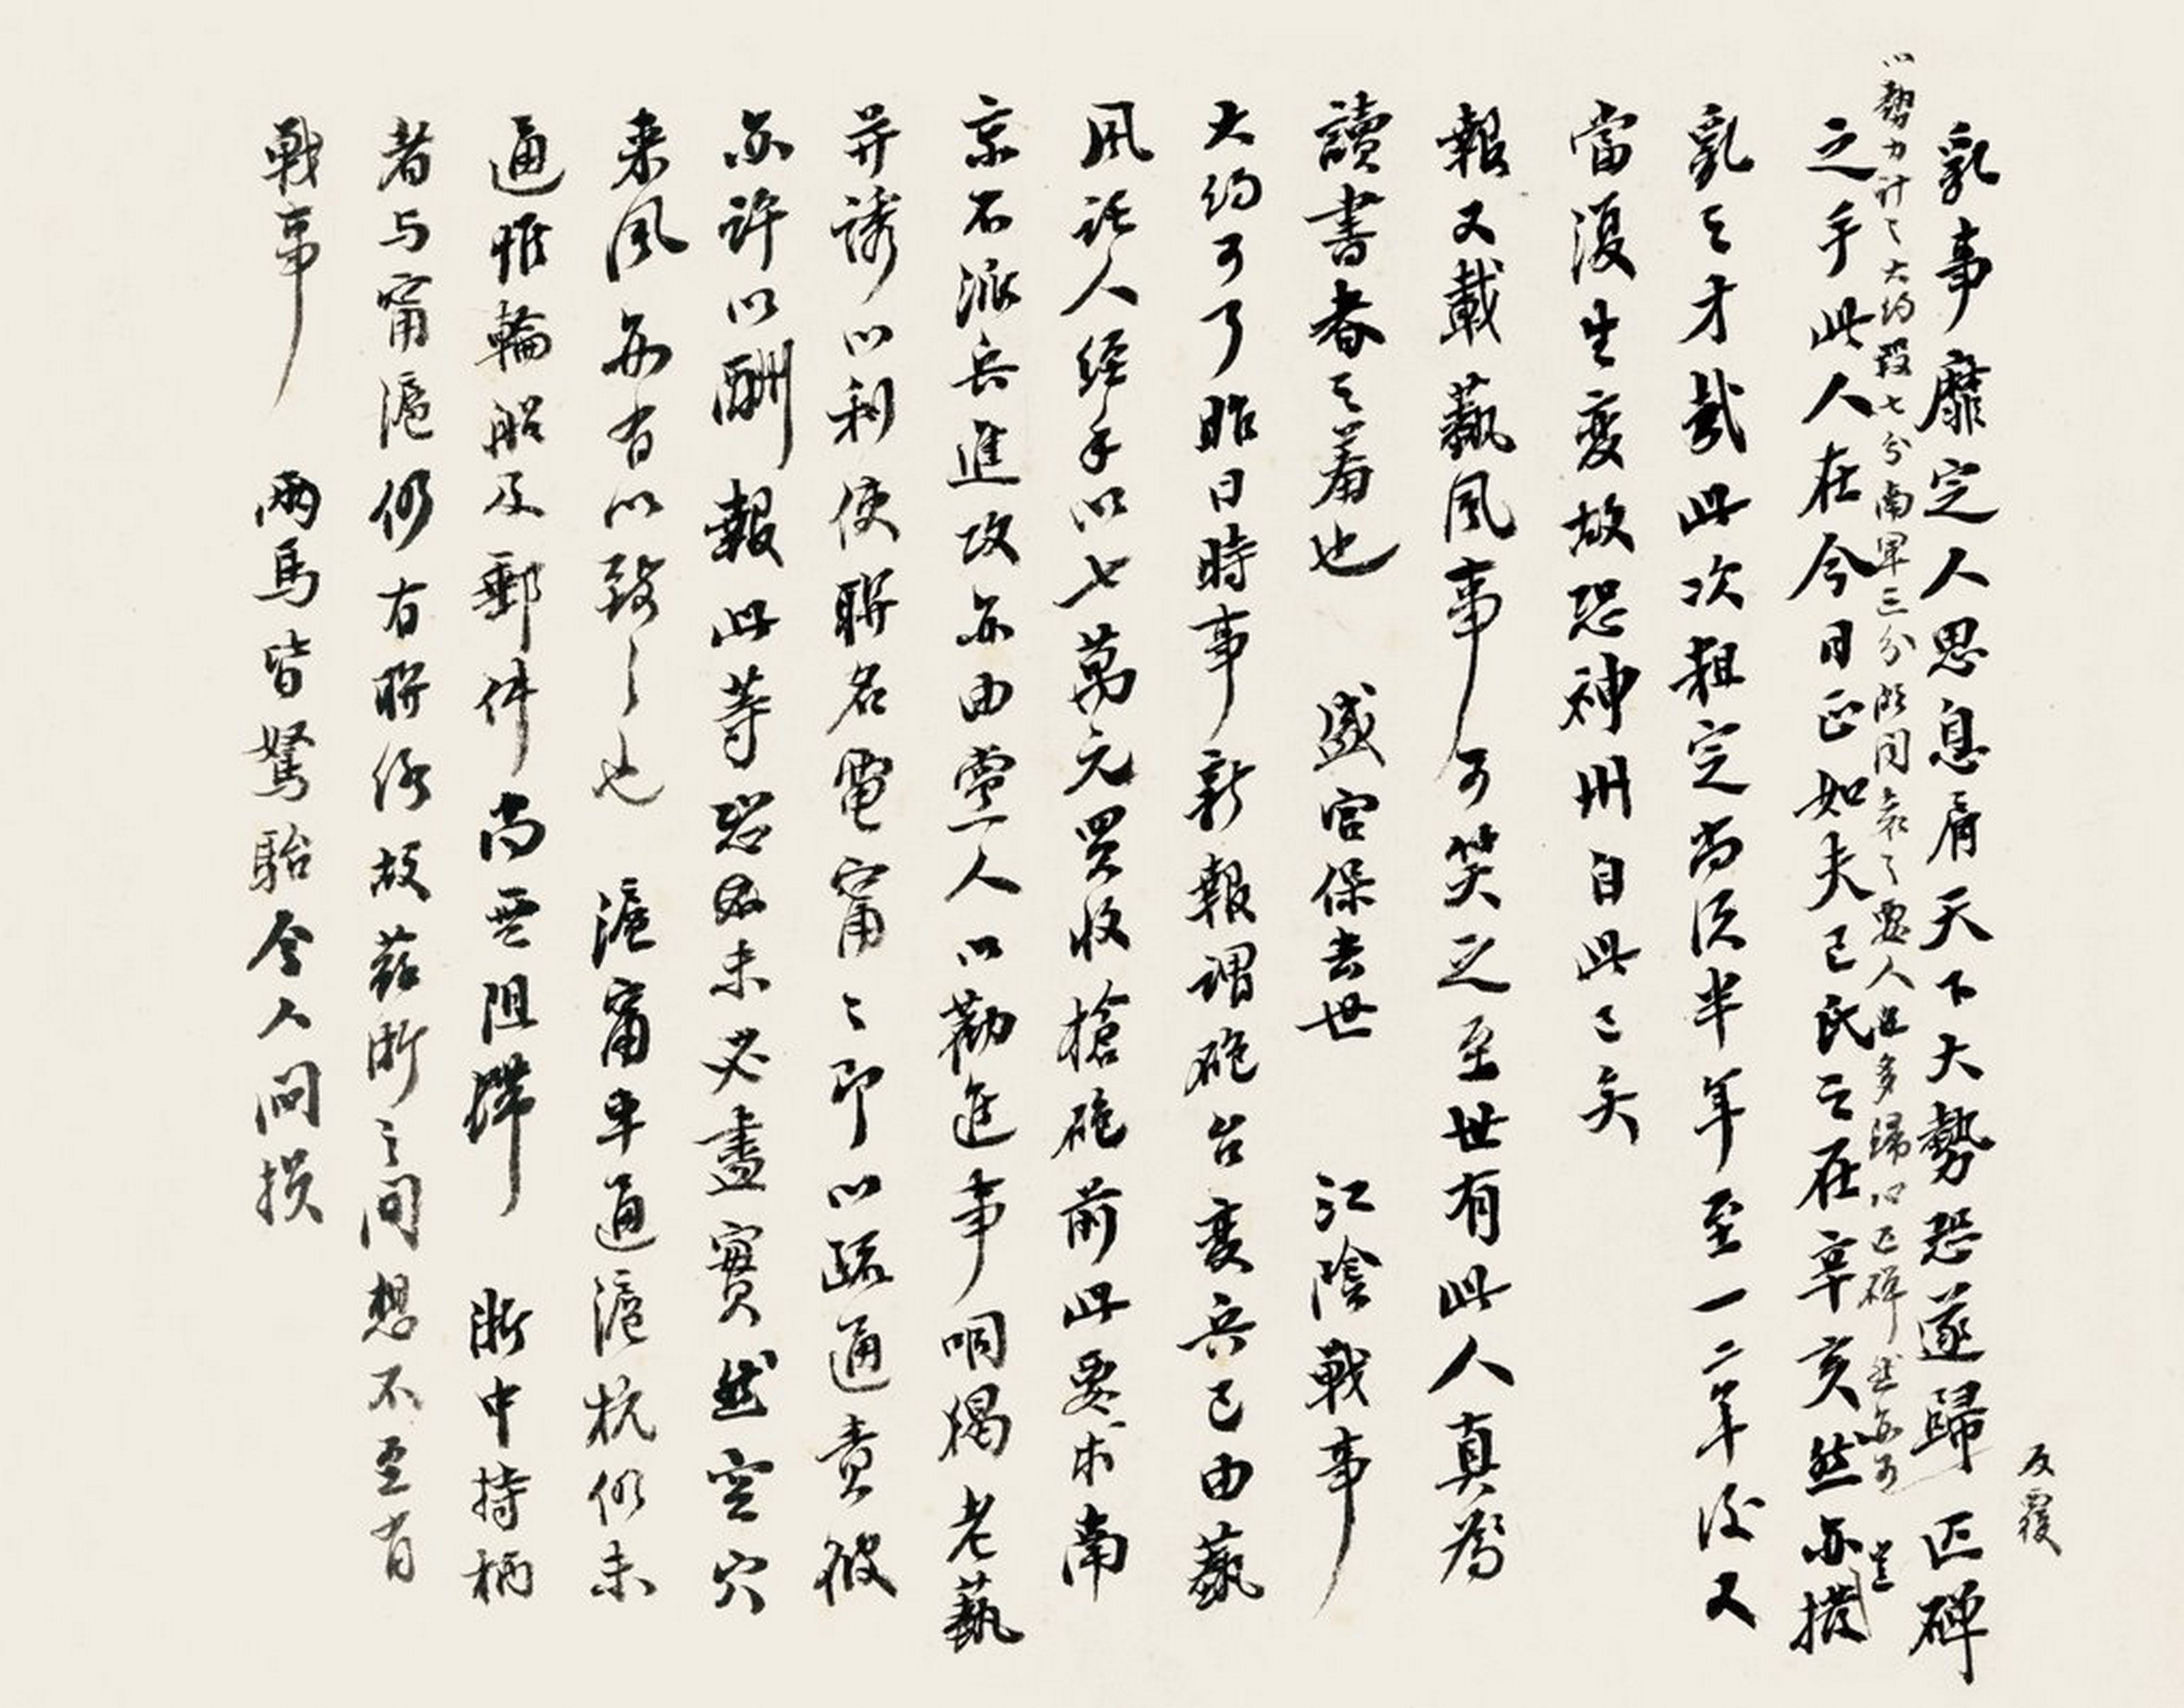 反覆
亂事靡定人思息肩天下大勢恐遂歸匹碑
以勢力計之大約段七分南軍三分 閒袁之要人且多歸心匹碑然亦可
之手此人在今日正如夫己氏之在辛亥然亦撥
豈
亂之才哉此次粗定尚須半年至一二年後又
當復生變故恐神州自此已矣
報又載蓺風事可笑之至世有此人真爲
讀書者之羞也　盛宮保去世　江陰戰事
大約可了昨日時事新報謂砲台變兵已由蓺
風託人經手以七萬元買收槍砲前此要求南
京不派兵進攻亦由壹人以勸進事恫猲老蓺
并誘以利使聯名電甯之即以疏通責彼
亦許以酬報此等恐亦未必盡實然空穴
来風每有以致之也　滬甯車通滬杭仍未
通惟輪船及郵件尚無阻滯　浙中持柄
者与甯滬仍有聯係故茲浙之間想不至有
戰事　兩馬皆駑駘令人悶損